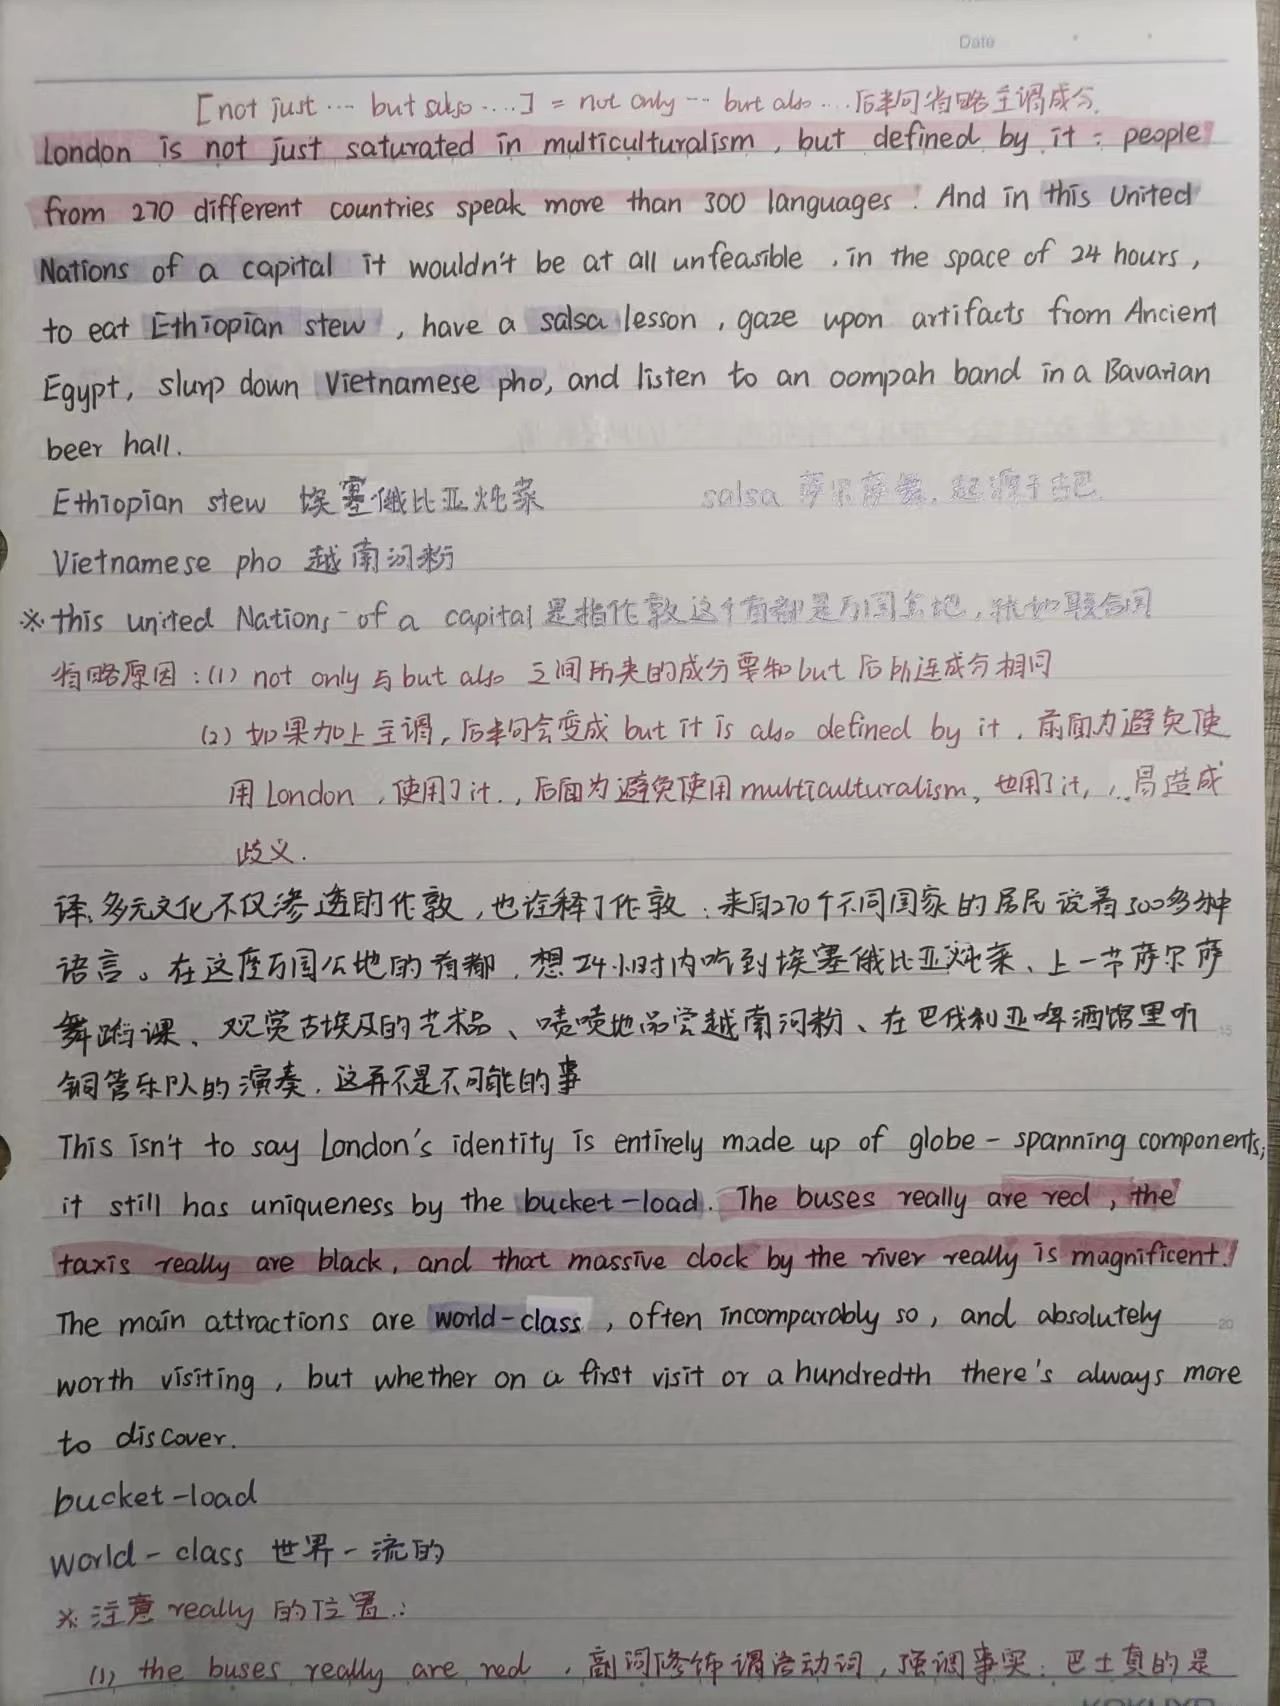 Date
[not just ... but also ....] = not only -- but also ....后半句省略主谓成分.
London is not just saturated in multiculturalism, but defined by it: people
from 270 different countries speak more than 300 languages! And in this United
Nations of a capital it wouldn't be at all unfeasible, in the space of 24 hours,
to eat Ethiopian stew, have a salsa lesson, gaze upon artifacts from Ancient
Egypt, slurp down Vietnamese pho, and listen to an oompah band in a Bavarian
beer hall.
Ethiopian stew 埃塞俄比亚炖菜 salsa 萨尔萨舞,起源于古巴
Vietnamese pho 越南河粉
※this united Nations of a capital是指伦敦这个首都是万国会地,犹如联合国
省略原因:(1) not only与but also 之间所夹的成分要和but后所连成分相同
(2)如果加上主谓,后半句会变成but it is also defined by it,前面为避免使
用London,使用了it.,后面为避免使用multiculturalism,也用了it,,..易造成
歧义.
译:多元文化不仅渗透的伦敦,也诠释了伦敦:来自270个不同国家的居民说着300多种
语言。在这座万国公地的首都,想24小时内吃到埃塞俄比亚炖菜、上一节萨尔萨
舞蹈课、观赏古埃及的艺术品、啧啧地品尝越南河粉、在巴伐利亚啤酒馆里听
15
铜管乐队的演奏,这再不是不可能的事
This isn't to say London's identity is entirely made up of globe-spanning components;
it still has uniqueness by the bucket-load. The buses really are red, the
taxis really are black, and that massive clock by the river really is magnificent.
The main attractions are world-class, often incomparably so, and absolutely
20
worth visiting, but whether on a first visit or a hundredth there's always more
to discover.
bucket-load
world-class 世界一流的
※注意really的位置:
(1) the buses really are red,副词修饰谓语动词,强调事实:巴士真的是
KOKUYO